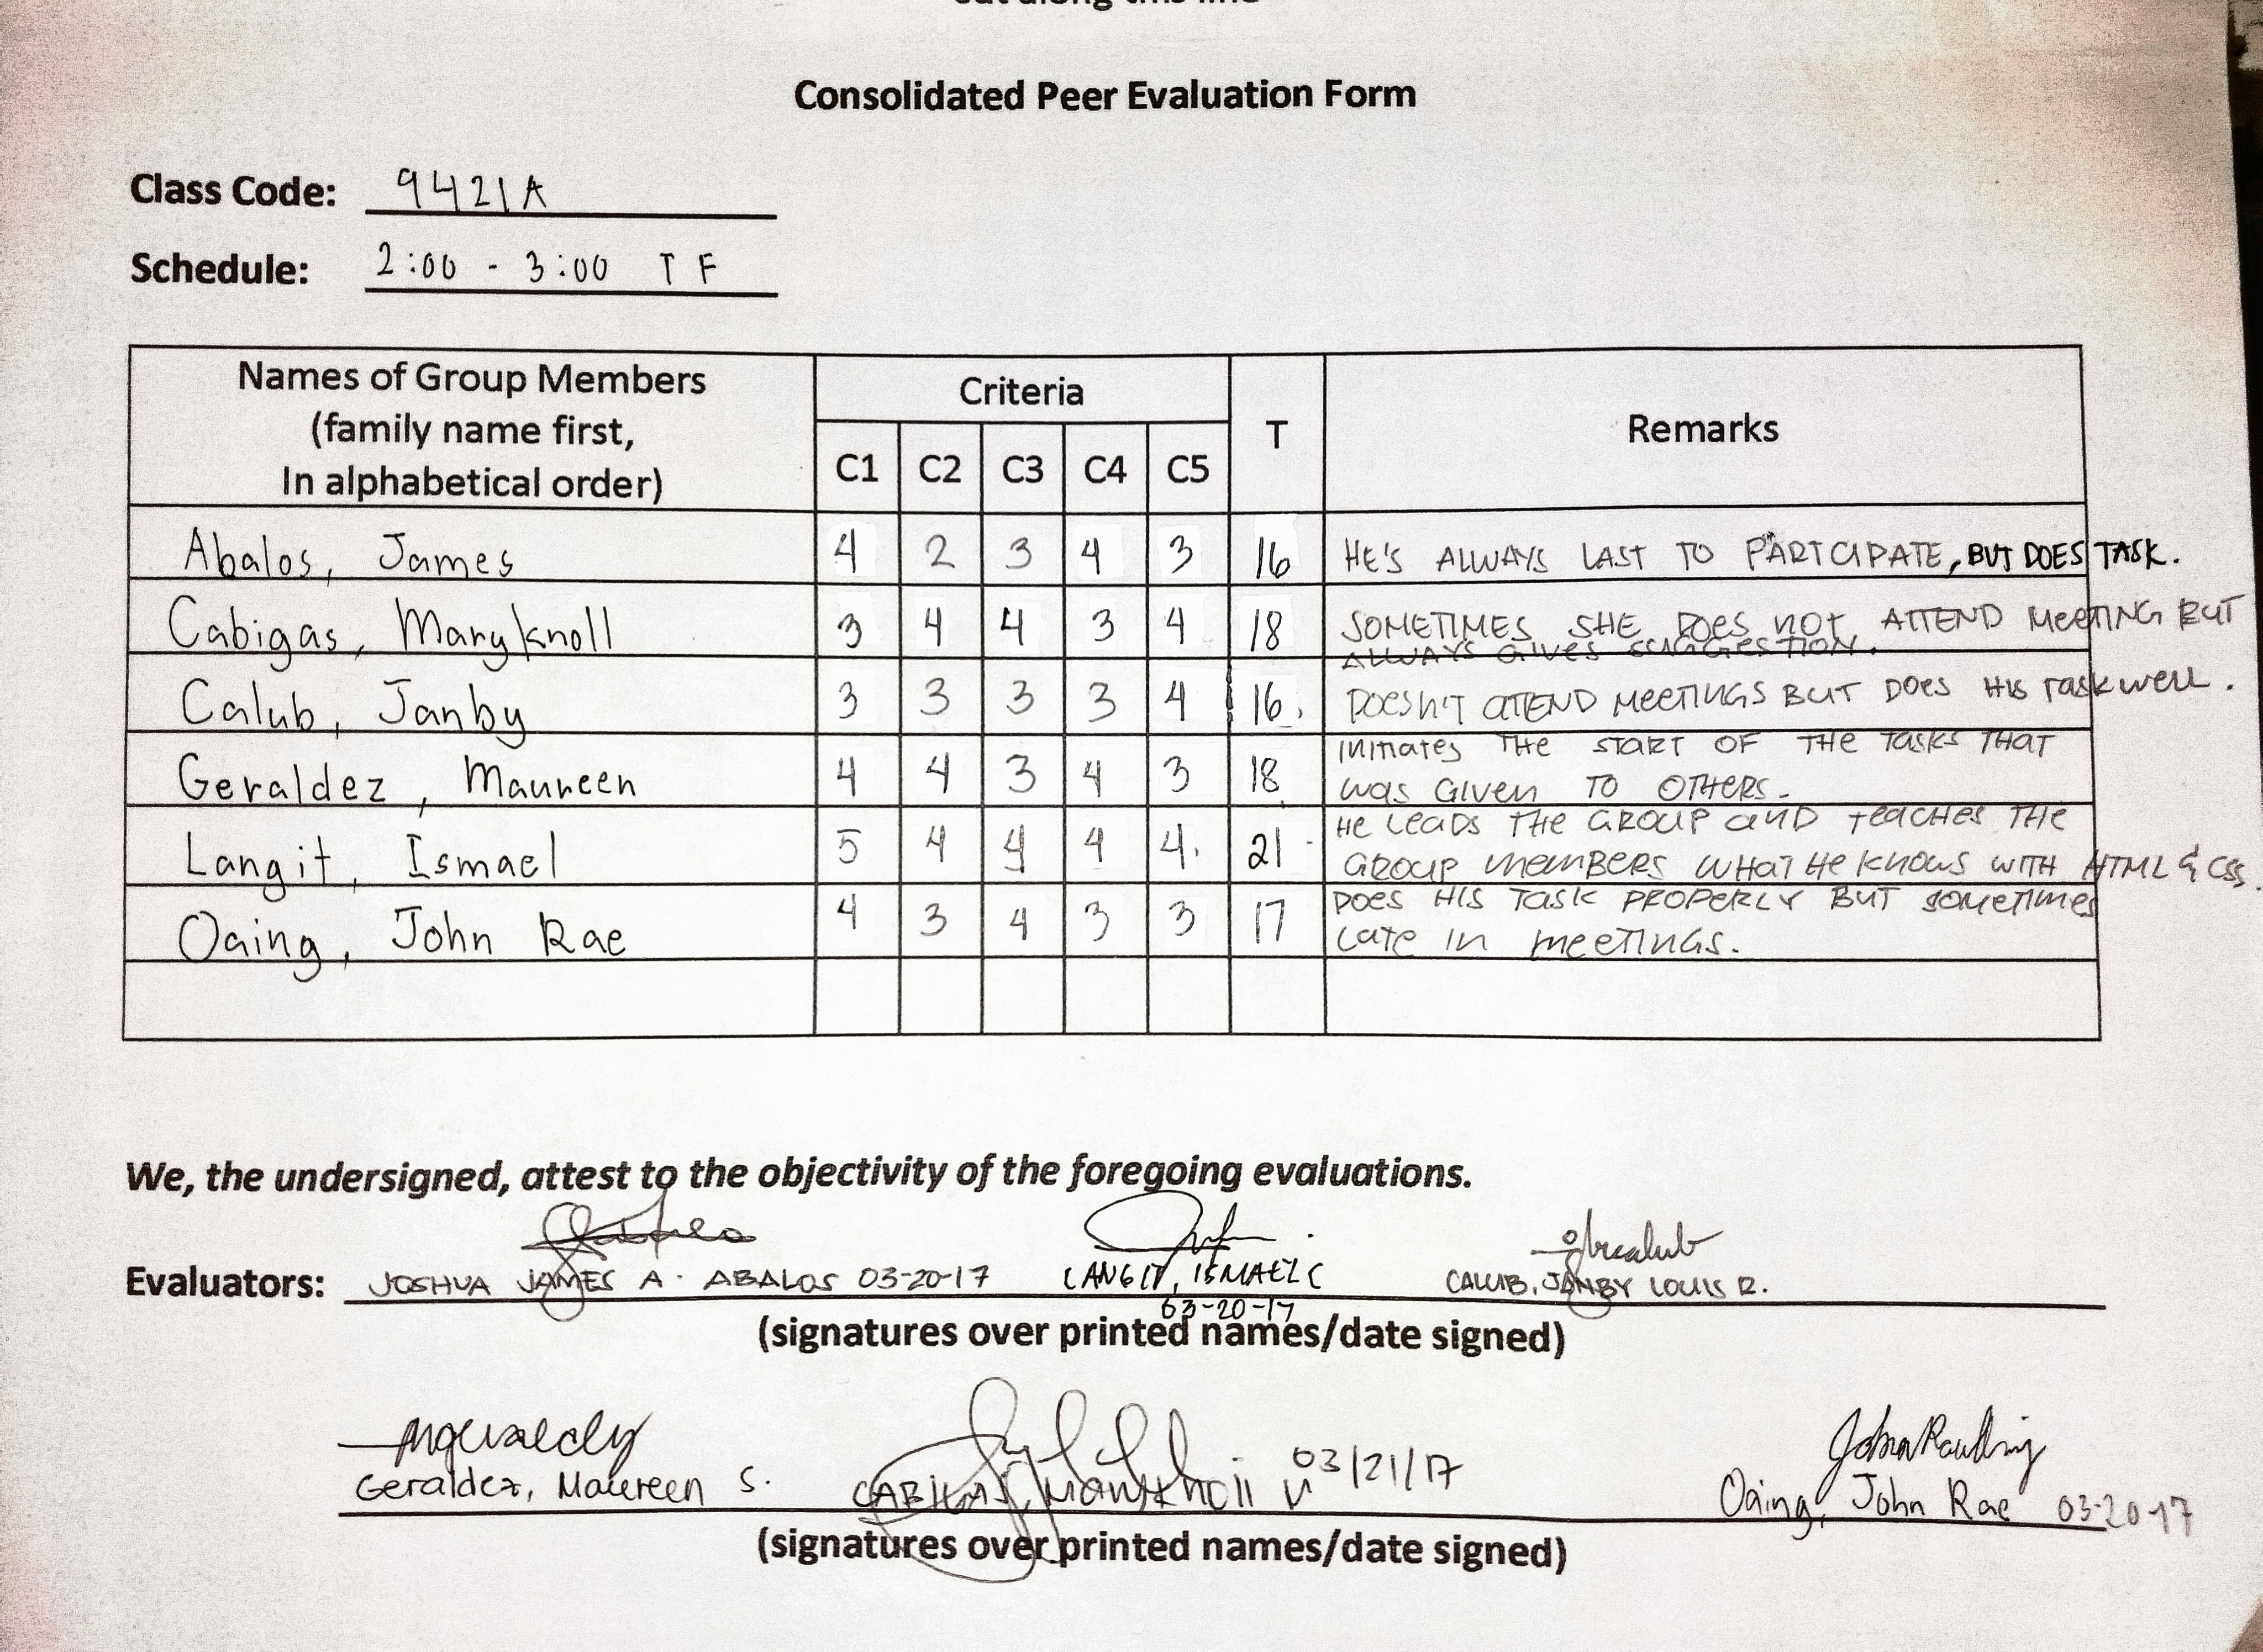 cut along this line
Consolidated Peer Evaluation Form
Class Code: 9421A
Schedule: 2:00 - 3:00 T F
Names of Group Members
(family name first,
In alphabetical order)
Criteria
T
Remarks
C1 C2 C3 C4 C5
Abalos, James 4 2 3 4 3 16 HE'S ALWAYS LAST TO PARTCIPATE, BUT DOES TASK.
Cabigas, Maryknoll 3 4 4 3 4 18 SOMETIMES SHE DOES NOT ATTEND MEETING BUT
ALWAYS GIVES SUGGESTION.
Calub, Janby 3 3 3 3 4 16. DOESN'T ATTEND MEETINGS BUT DOES HIS TASK WELL.
INITIATES THE START OF THE TASKS THAT
Geraldez, Maureen 4 4 3 4 3 18 WAS GIVEN TO OTHERS.
HE LEADS THE GROUP AND TEACHES THE
Langit, Ismael 5 4 4 4 4. 21 GROUP MEMBERS WHAT HE KNOWS WITH HTML & CSS.
DOES HIS TASK PROPERLY BUT SOMETIMES
Oaing, John Rae 4 3 4 3 3 17 LATE IN MEETINGS.
We, the undersigned, attest to the objectivity of the foregoing evaluations.
Evaluators: JOSHUA JAMES A. ABALOS 03-20-17 LANGIT, ISMAEL C CALUB, JANBY LOUIS R.
03-20-17
(signatures over printed names/date signed)
Geraldez, Maureen S. CABIGAS, Maryknoll V 03/21/17 Oaing, John Rae 03-20-17
(signatures over printed names/date signed)